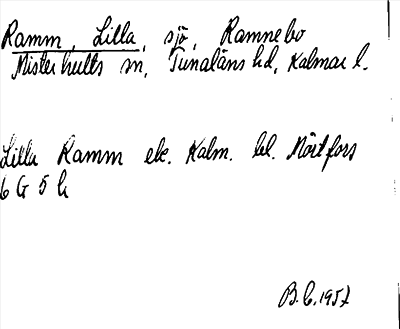 Ramm, Lilla, sjö, Ramnebo
Misterhults sn, Tunaläns hd, Kalmar l.
Lilla Ramm ek. Kalm. bl. Mörtfors
6 G 5 h
B.C. 1957